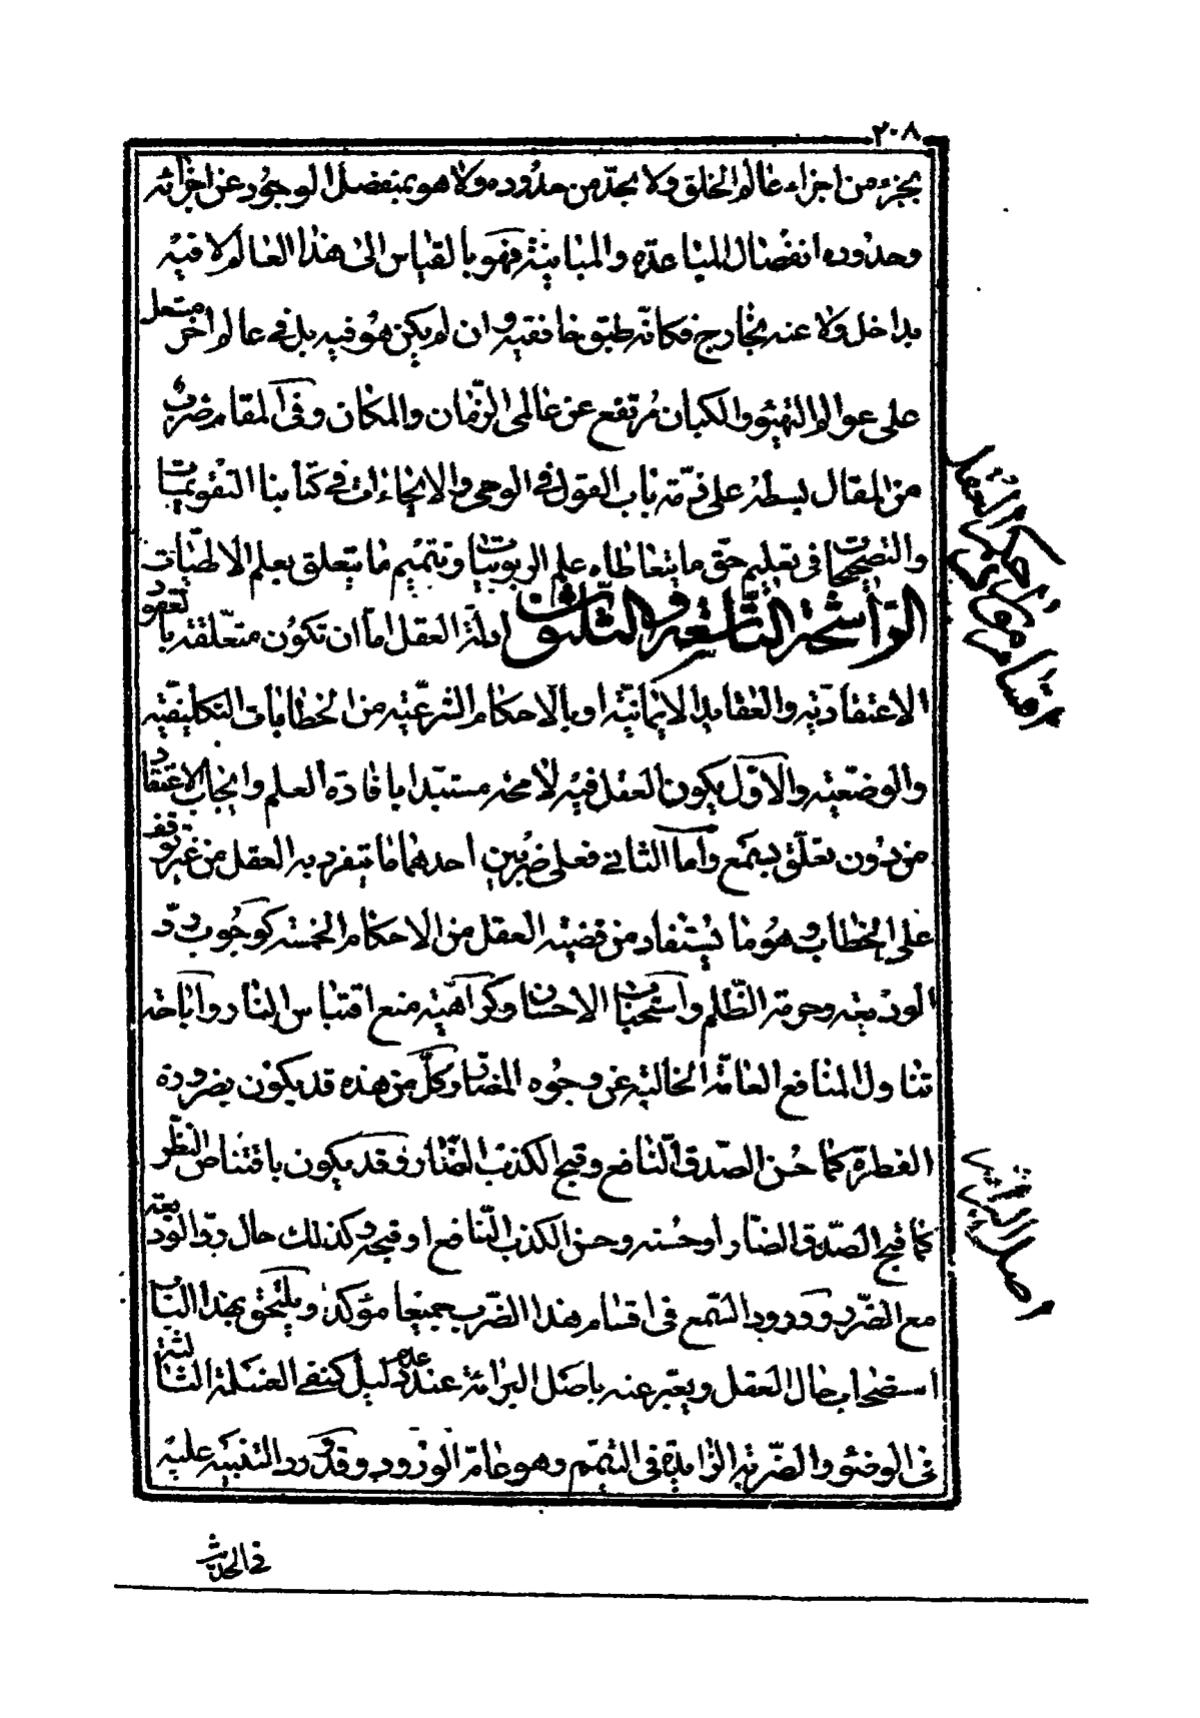 ٢٠٨
بجزء من اجزاء عالم الخلق ولا بحدّ من حدوده ولا هو بمنفصل الوجود عن اجزائه
وحدوده انفصال المباعدة والمباينة فهو بالقياس الى هذا العالم لا فيه
بداخل ولا عنه بخارج فكانّه طبق خافقيه وان لم يكن هو فيه بل في عالم اخر مشتمل
على عوالم التهيؤ والكيان مرتفع عن عالمى الزّمان والمكان وفى المقام ضرب
من المقال بسطه على ذمّة باب القول في الوحى والايحاءات في كتابنا التقويمات
والتصحيحات فى تعليم حقّ ما يتعاطاه علم الربوبيّات وتتميم ما يتعلق بعلم الالهيّات
الرّاشحة التّاسعة والثّلثون ادلّة العقل امّا ان تكون متعلّقة بالعقود
الاعتقاديّة والعقايد الايمانيّة او بالاحكام الشرعيّة من الخطابات التكليفيّة
والوضعيّة والاوّل يكون العقل فيه لا محة مستبدا بافادة العلم وايجاب الاعتقاد
من دون تعلّق بسمع وامّا الثاني فعلى ضربين احدهما ما يتفرد به العقل من غير توقف
على الخطاب وهو ما يستفاد من قضيّة العقل من الاحكام الخمسة كوجوب ردّ
الوديعة وحرمة الظّلم واستحباب الاحسان وكراهيّة منع اقتباس النار واباحة
تناول المنافع العامّة الخالية عن وجوه المضارّ وكلّ من هذه قد يكون بضرورة
الفطرة كما حسن الصّدق النّافع وقبح الكذب الضّار وقد يكون باقتناص النّظر
كما قبح الصّدق الضارّ او حسنه وحسن الكذب النّافع او قبحه وكذلك حال ردّ الوديعة
مع الضّرر وورود السّمع فى اقسام هذا الضّرب جميعا مؤكد ويلتحق بهذا الباب
استصحاب حال العقل ويعبّر عنه باصل البرائة عند عدم دليل كنفى الغسلة الثالثة
في الوضوء والضّربة الزّايدة فى التيمّم وهو عامّ الورود وقد ورد التنبيه عليه
فى الحديث
اقسام
اصل البرائة